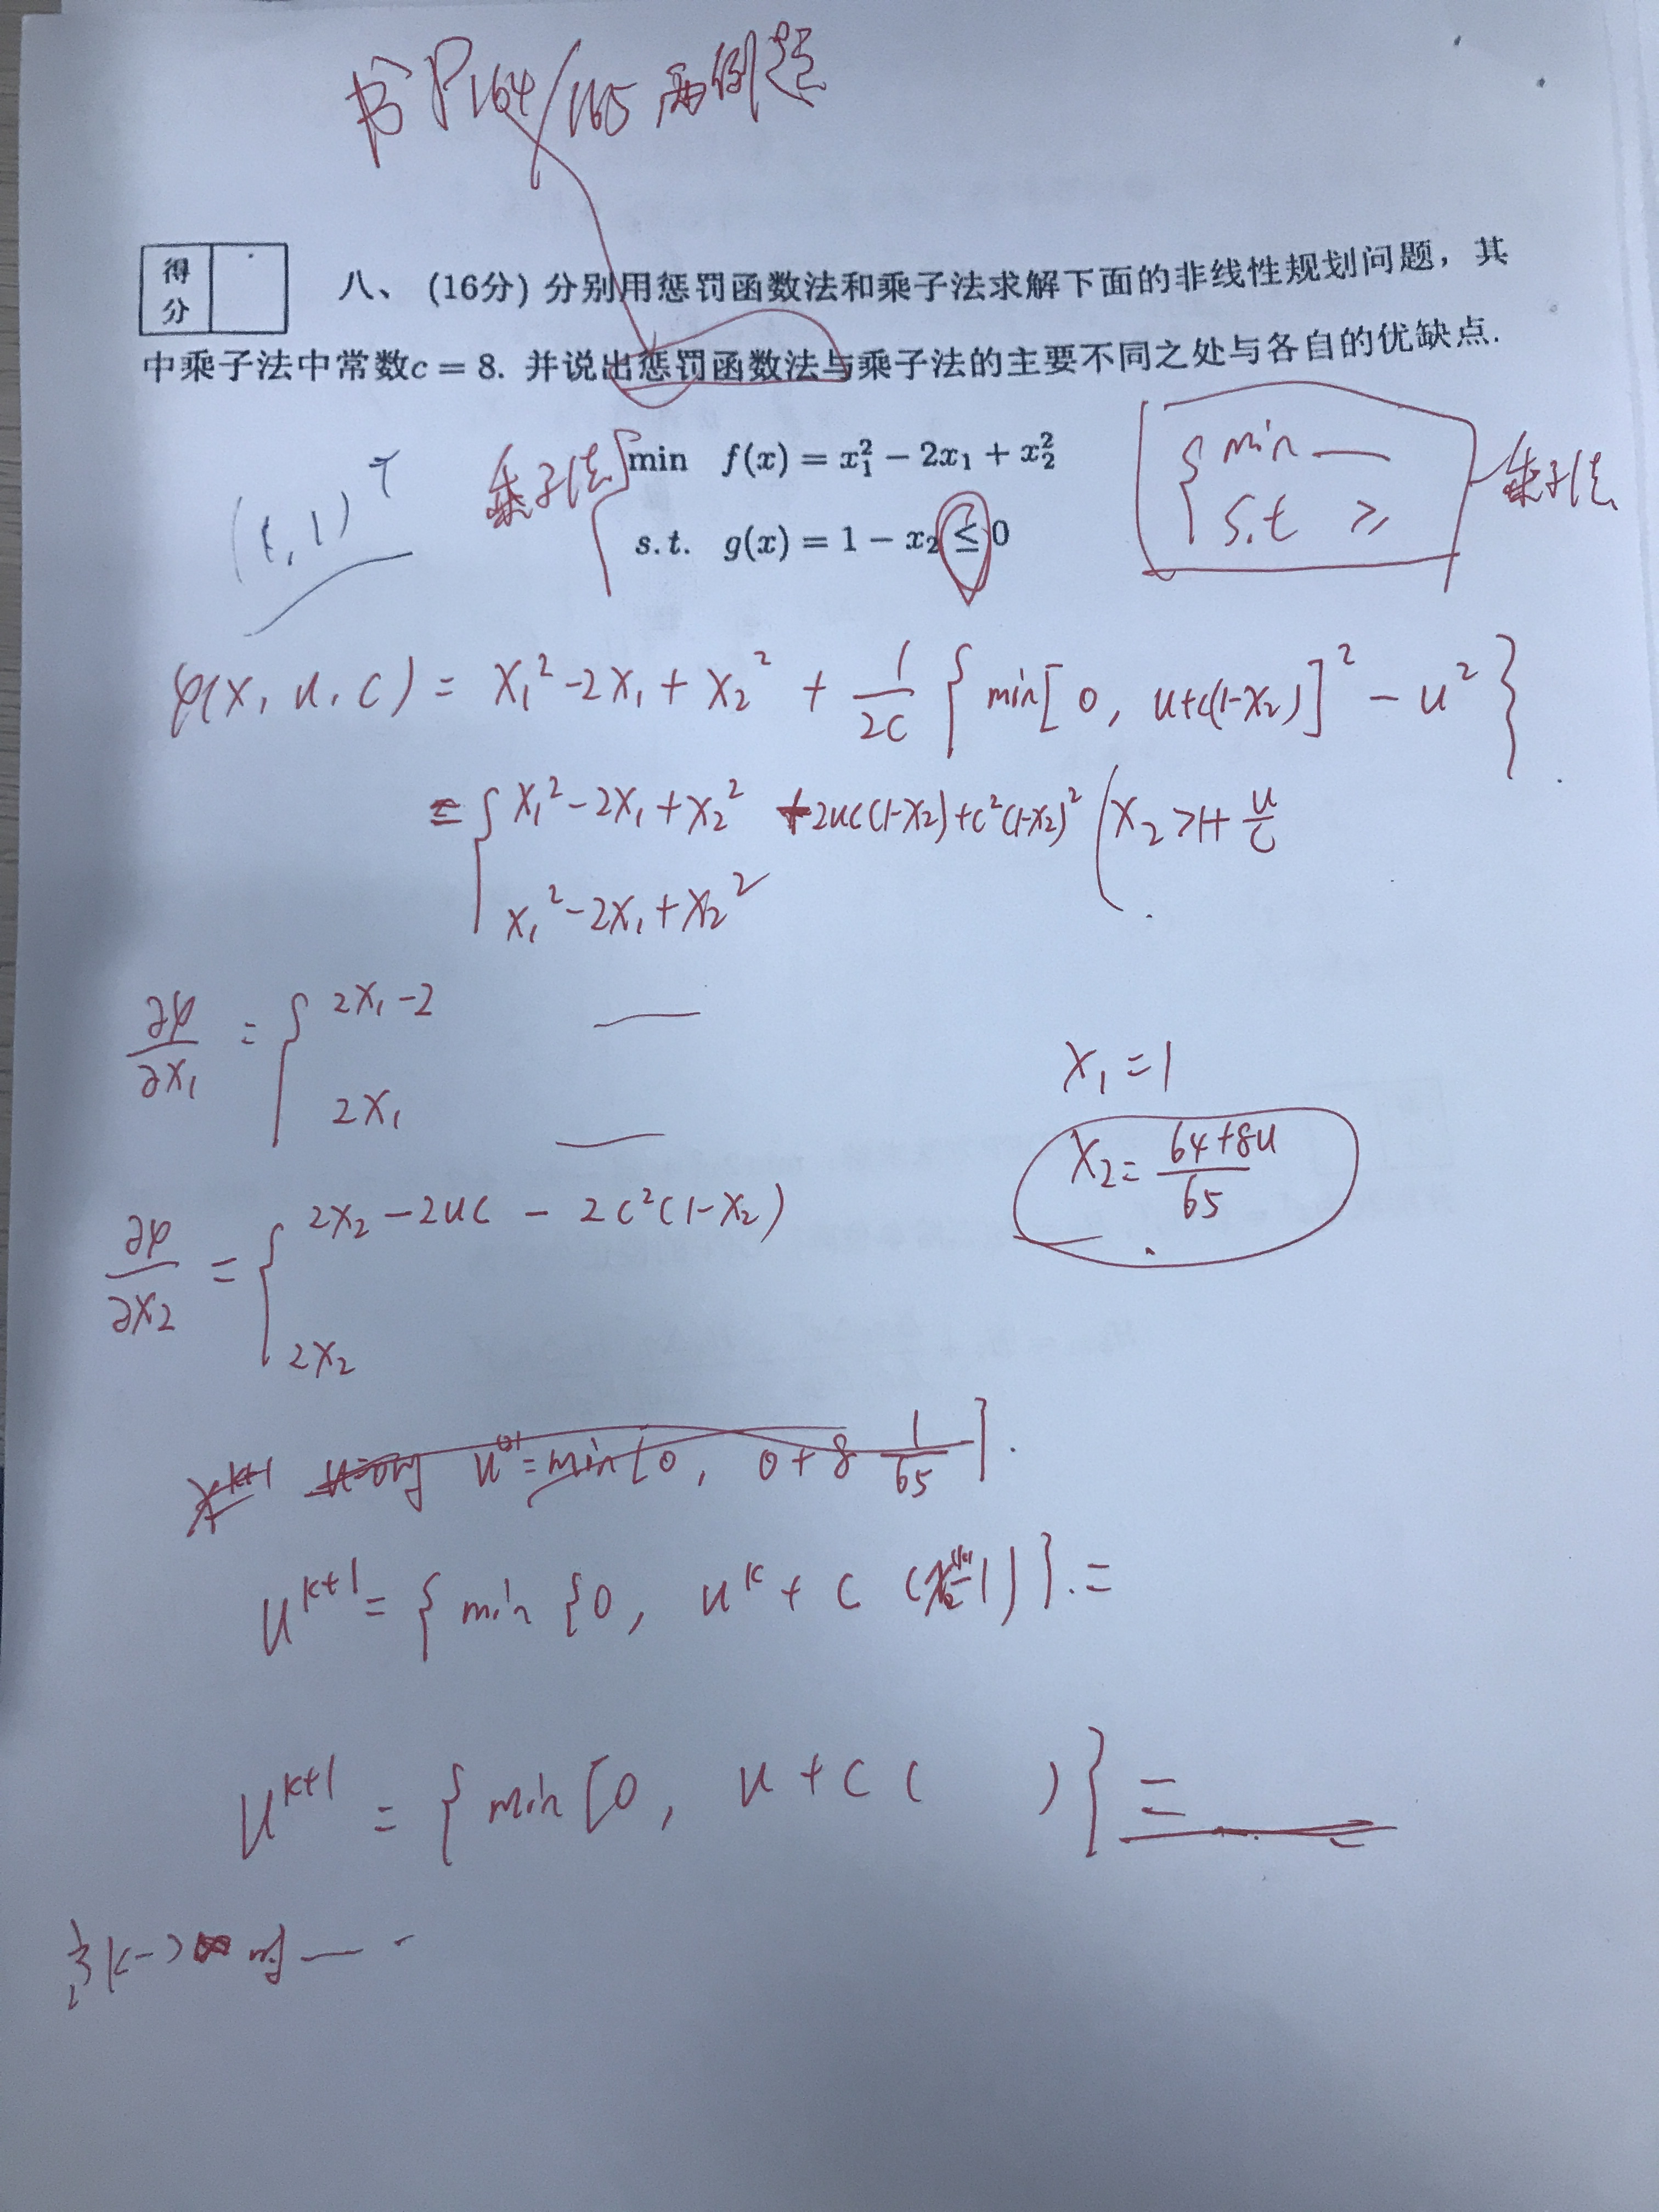 书 P164/165 两例题
得分
八、(16分) 分别用惩罚函数法和乘子法求解下面的非线性规划问题，其
中乘子法中常数c = 8. 并说出惩罚函数法与乘子法的主要不同之处与各自的优缺点.
(1, 1)ᵀ
乘子法
min f(x) = x₁² − 2x₁ + x₂²
s.t. g(x) = 1 − x₂ ≤ 0
min —
s.t ≥
乘子法
φ(x, u, c) = x₁² − 2x₁ + x₂² + 1/2c { min[0, u+c(1-x₂)]² − u² }
= { x₁² − 2x₁ + x₂² + 2uc(1-x₂) + c²(1-x₂)² ( x₂ > 1+ u/c
x₁² − 2x₁ + x₂²
∂φ/∂x₁ = { 2x₁ − 2 —
2x₁ —
x₁ = 1
x₂ = (64+8u)/65
∂φ/∂x₂ = { 2x₂ − 2uc − 2c²(1-x₂)
2x₂
min[0, 0+8 1/65].
uᵏ⁺¹ = { min {0, uᵏ + c (x₂ᵏ−1)}. =
uᵏ⁺¹ = { min [0, u + c ( )} =
当k->∞时 —